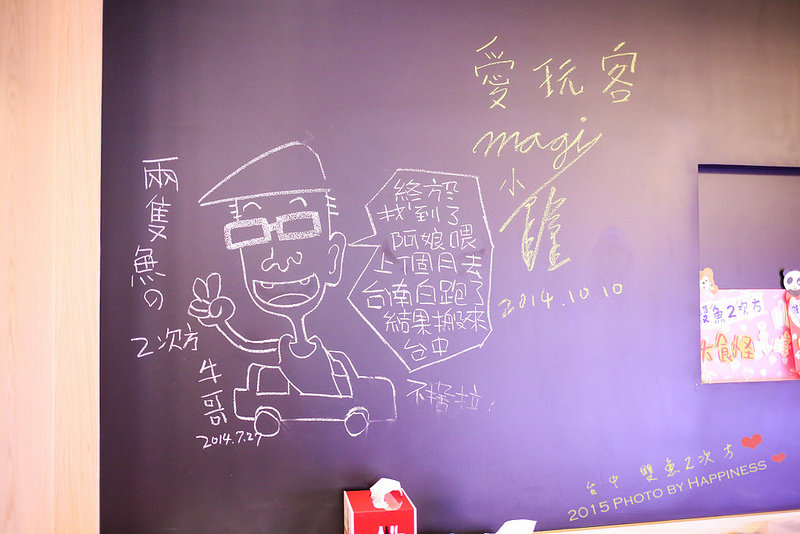 兩隻魚の
2次方
牛哥
2014.7.27
終於
找到了
阿娘喂
上個月去
台南白跑了
結果搬來
台中
愛玩客
magi
小
2014.10.10
雙魚2次方
大食怪
台中 雙魚2次方
2015 PHOTO BY HAPPINESS